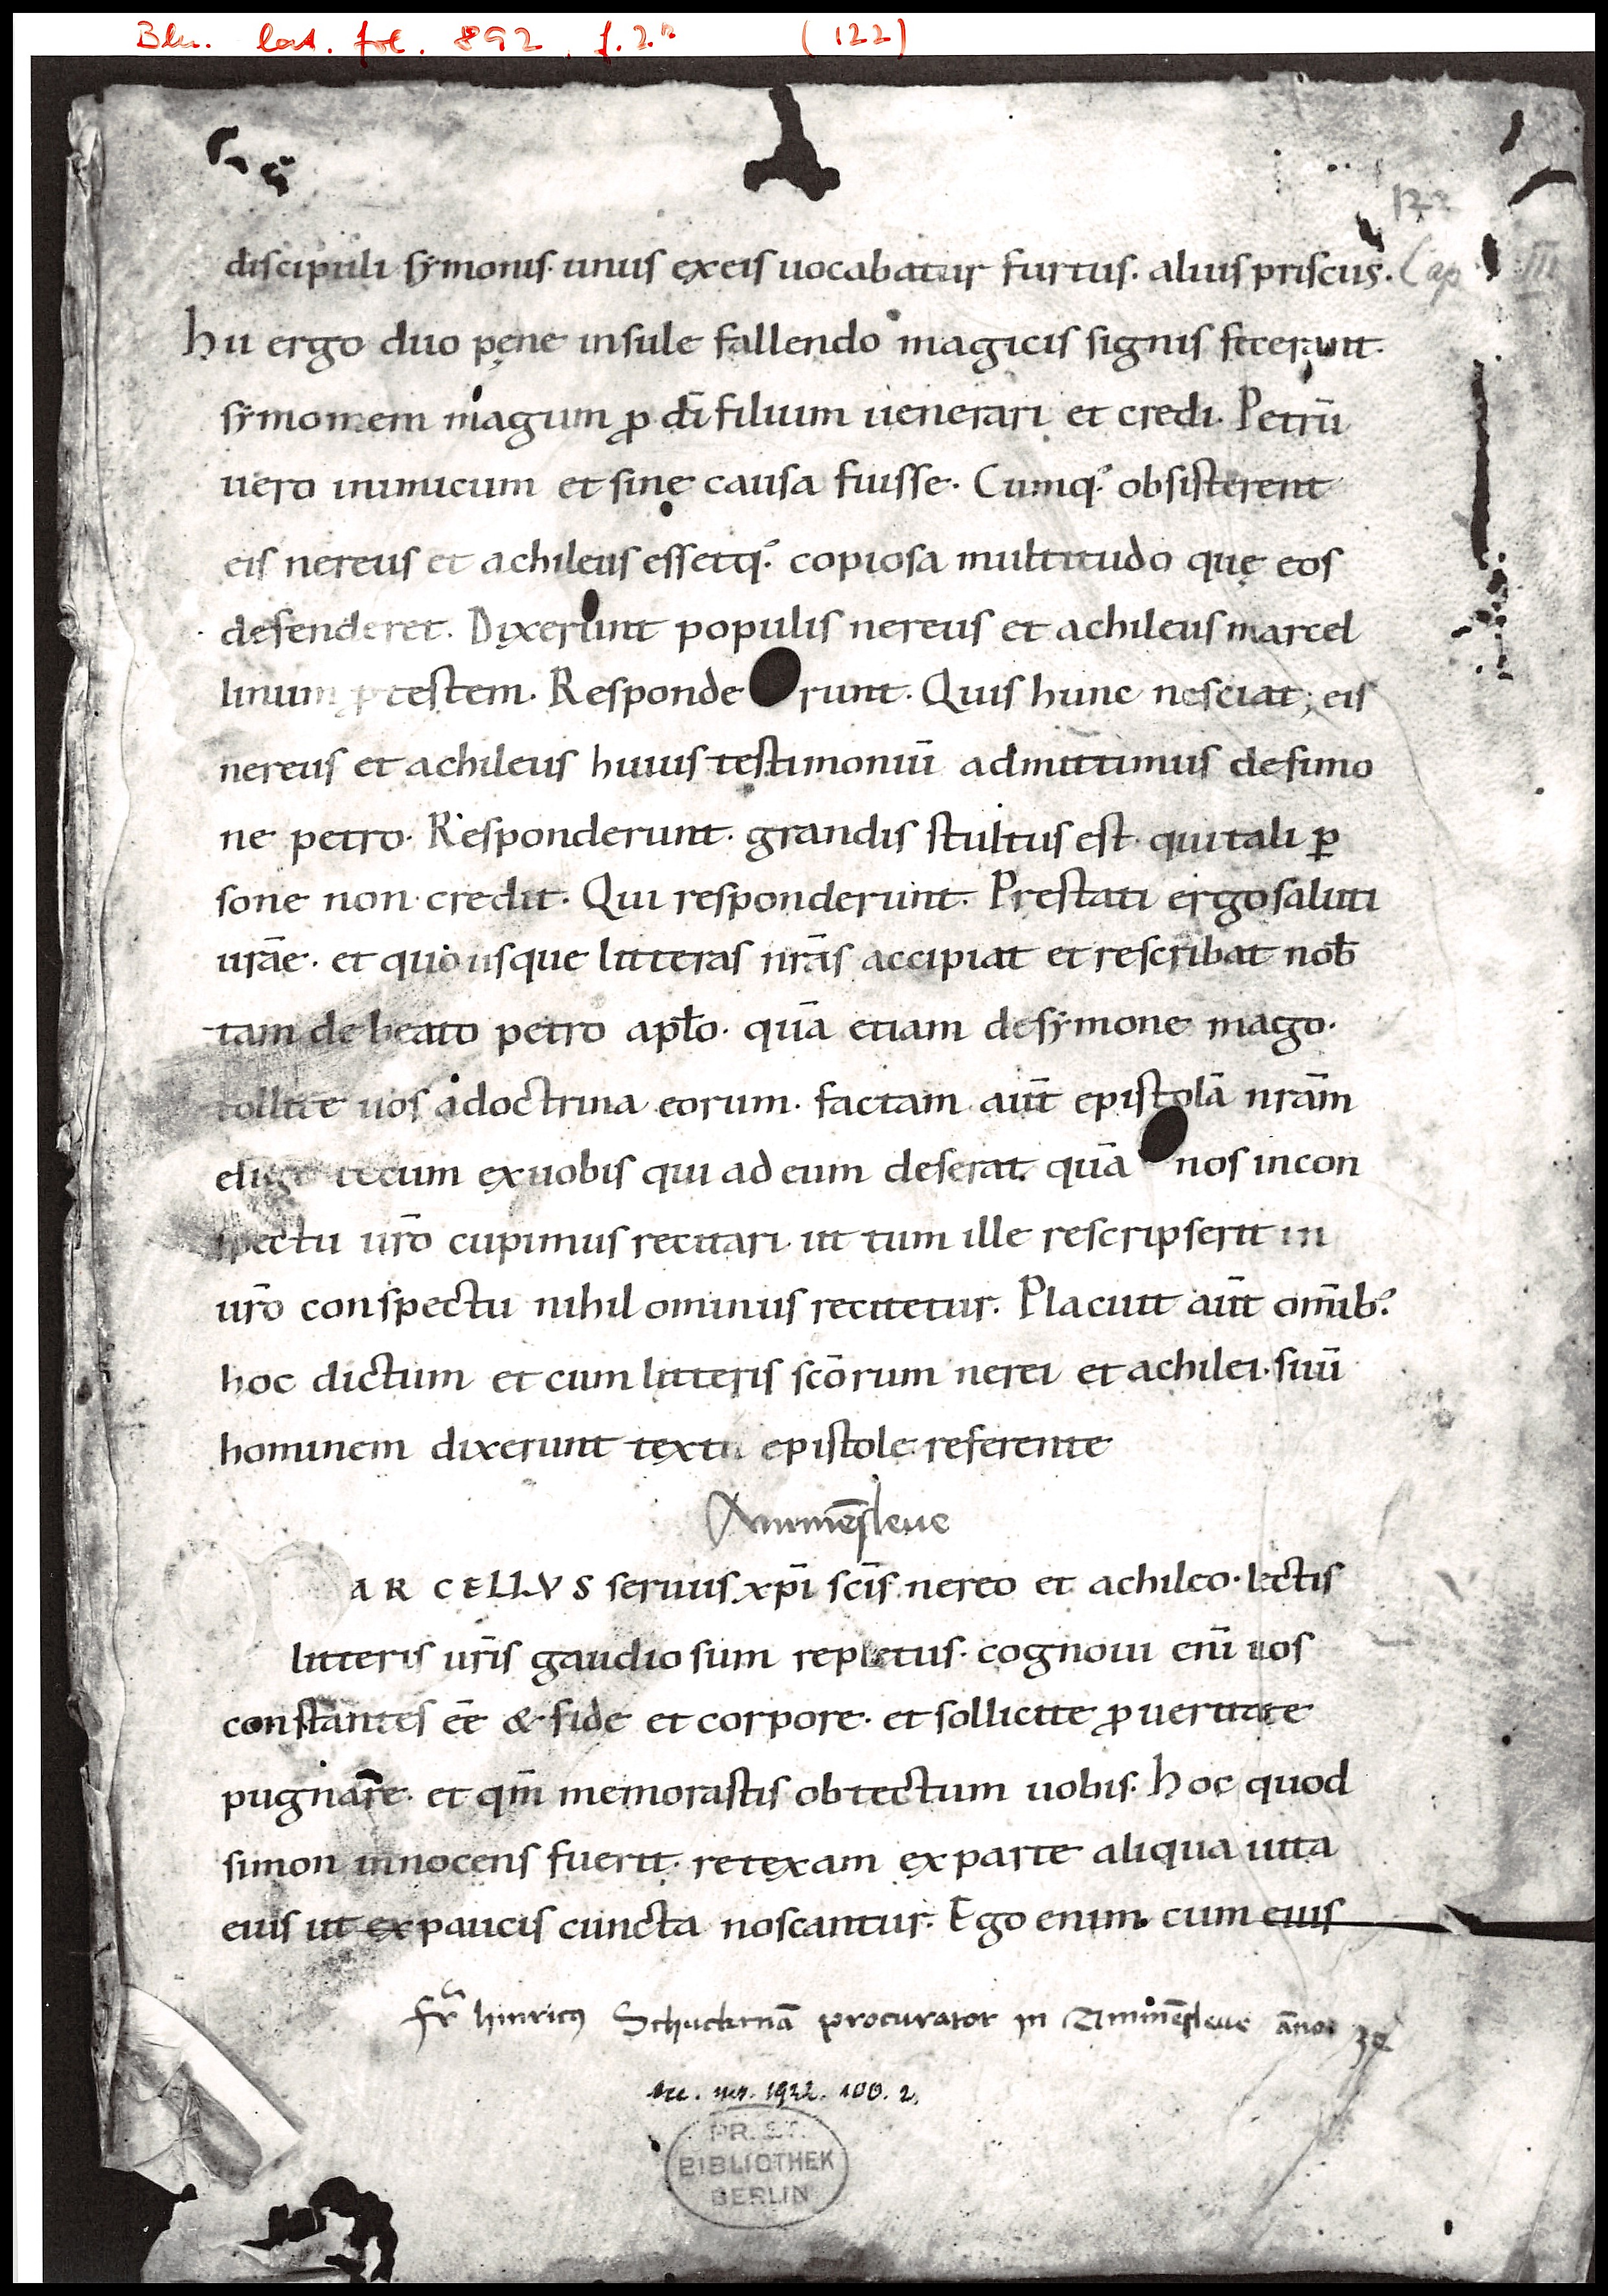 Bln. lat. fol. 892, f. 2r (122)
122
discipuli sẏmonis· unus ex eis uocabatur furtus· alius priscus· Cap III
hii ergo duo pene insule fallendo magicis signis fecerunt·
sẏmonem magum ꝓ dī filium uenerari et credi· Petrū
uero inimicum et sine causa fuisse· Cumq; obsisterent
eis nereus et achileus essetq; copiosa multitudo quę eos
defenderet· Dixerunt populis nereus et achileus marcel
linum testem· Responderunt· Quis hunc nesciat; eis
nereus et achileus huius testimoniū admittimus de simo
ne petro· Responderunt· grandis stultus est· qui tali ꝑ
sone non credit· Qui responderunt· Prestati ergo saluti
urāe· et quo usque litteras nrās accipiat et rescribat nob̄
tam de beato petro apl̄o· quā etiam de sẏmone mago·
tollite uos a doctrina eorum· factam aūt epistolā nrām
elige tecum ex uobis qui ad eum deferat quā nos in con
spectu ur̄o cupimus recitari ut tum ille rescripserit in
ur̄o conspectu nihil ominus recitetur· Placuit aūt om̄ib;
hoc dictum et cum litteris scōrum nerei et achilei· suū
hominem dixerunt textu epistole referente
Ammēsleue
ARCELLVS seruus xp̄i scīs nereo et achileo· lectis
litteris ur̄is gaudio sum repletus· cognoui enī uos
constantes ēe & fide et corpore· et sollicite ꝓ ueritate
pugnare· et qm̄ memorastis obtectum uobis· hoc quod
simon innocens fuerit· retexam ex parte aliqua uita
eius ut ex paucis cuncta noscantur· Ego enim cum eius
fr̄ hinricꝰ Schuckmā procurator in Ammēsleue ānor
acc. ms. 1922. 100. 2.
PR. ST.
BIBLIOTHEK
BERLIN